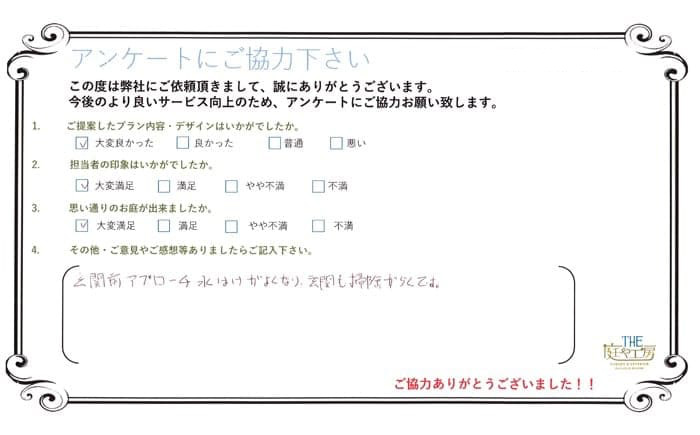 アンケートにご協力下さい
この度は弊社にご依頼頂きまして、誠にありがとうございます。
今後のより良いサービス向上のため、アンケートにご協力お願い致します。
1. ご提案したプラン内容・デザインはいかがでしたか。
☑ 大変良かった □ 良かった □ 普通 □ 悪い
2. 担当者の印象はいかがでしたか。
☑ 大変満足 □ 満足 □ やや不満 □ 不満
3. 思い通りのお庭が出来ましたか。
☑ 大変満足 □ 満足 □ やや不満 □ 不満
4. その他・ご意見やご感想等ありましたらご記入下さい。
玄関前アプローチ水はけがよくなり、玄関も掃除がらくです。
THE
庭や工房
ご協力ありがとうございました！！